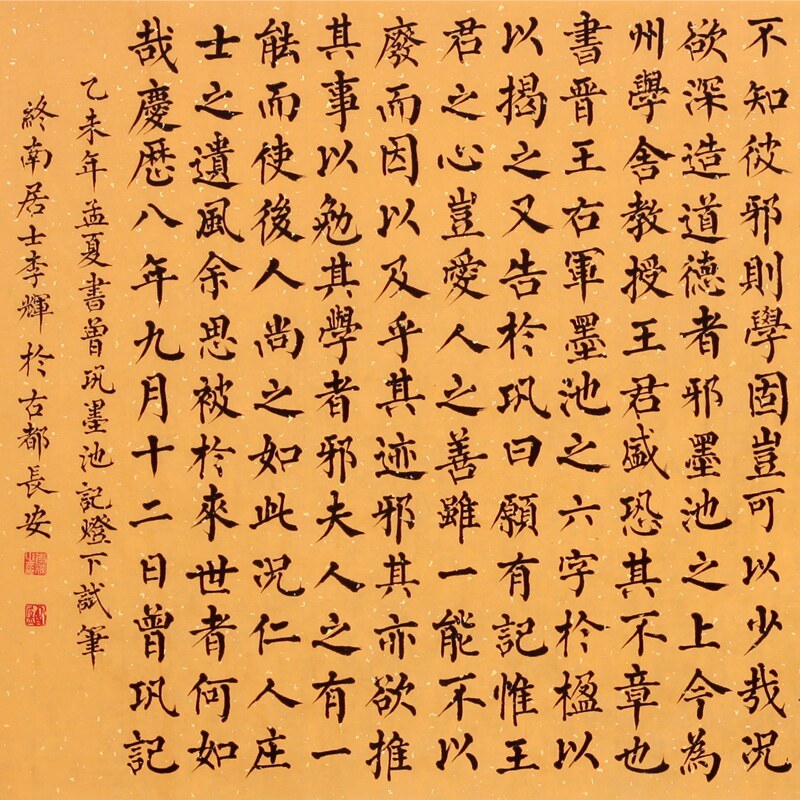 不知彼邪則學固豈可以少哉況
欲深造道德者邪墨池之上今為
州學舍教授王君盛恐其不章也
書晉王右軍墨池之六字於楹以
以揭之又告於巩曰願有記惟王
君之心豈愛人之善雖一能不以
廢而因以及乎其迹邪其亦欲推
其事以勉其學者邪夫人之有一
能而使後人尚之如此況仁人庄
士之遺風余思被於來世者何如
哉慶歷八年九月十二日曾巩記
乙未年孟夏書曾巩墨池記燈下試筆
終南居士李輝於古都長安